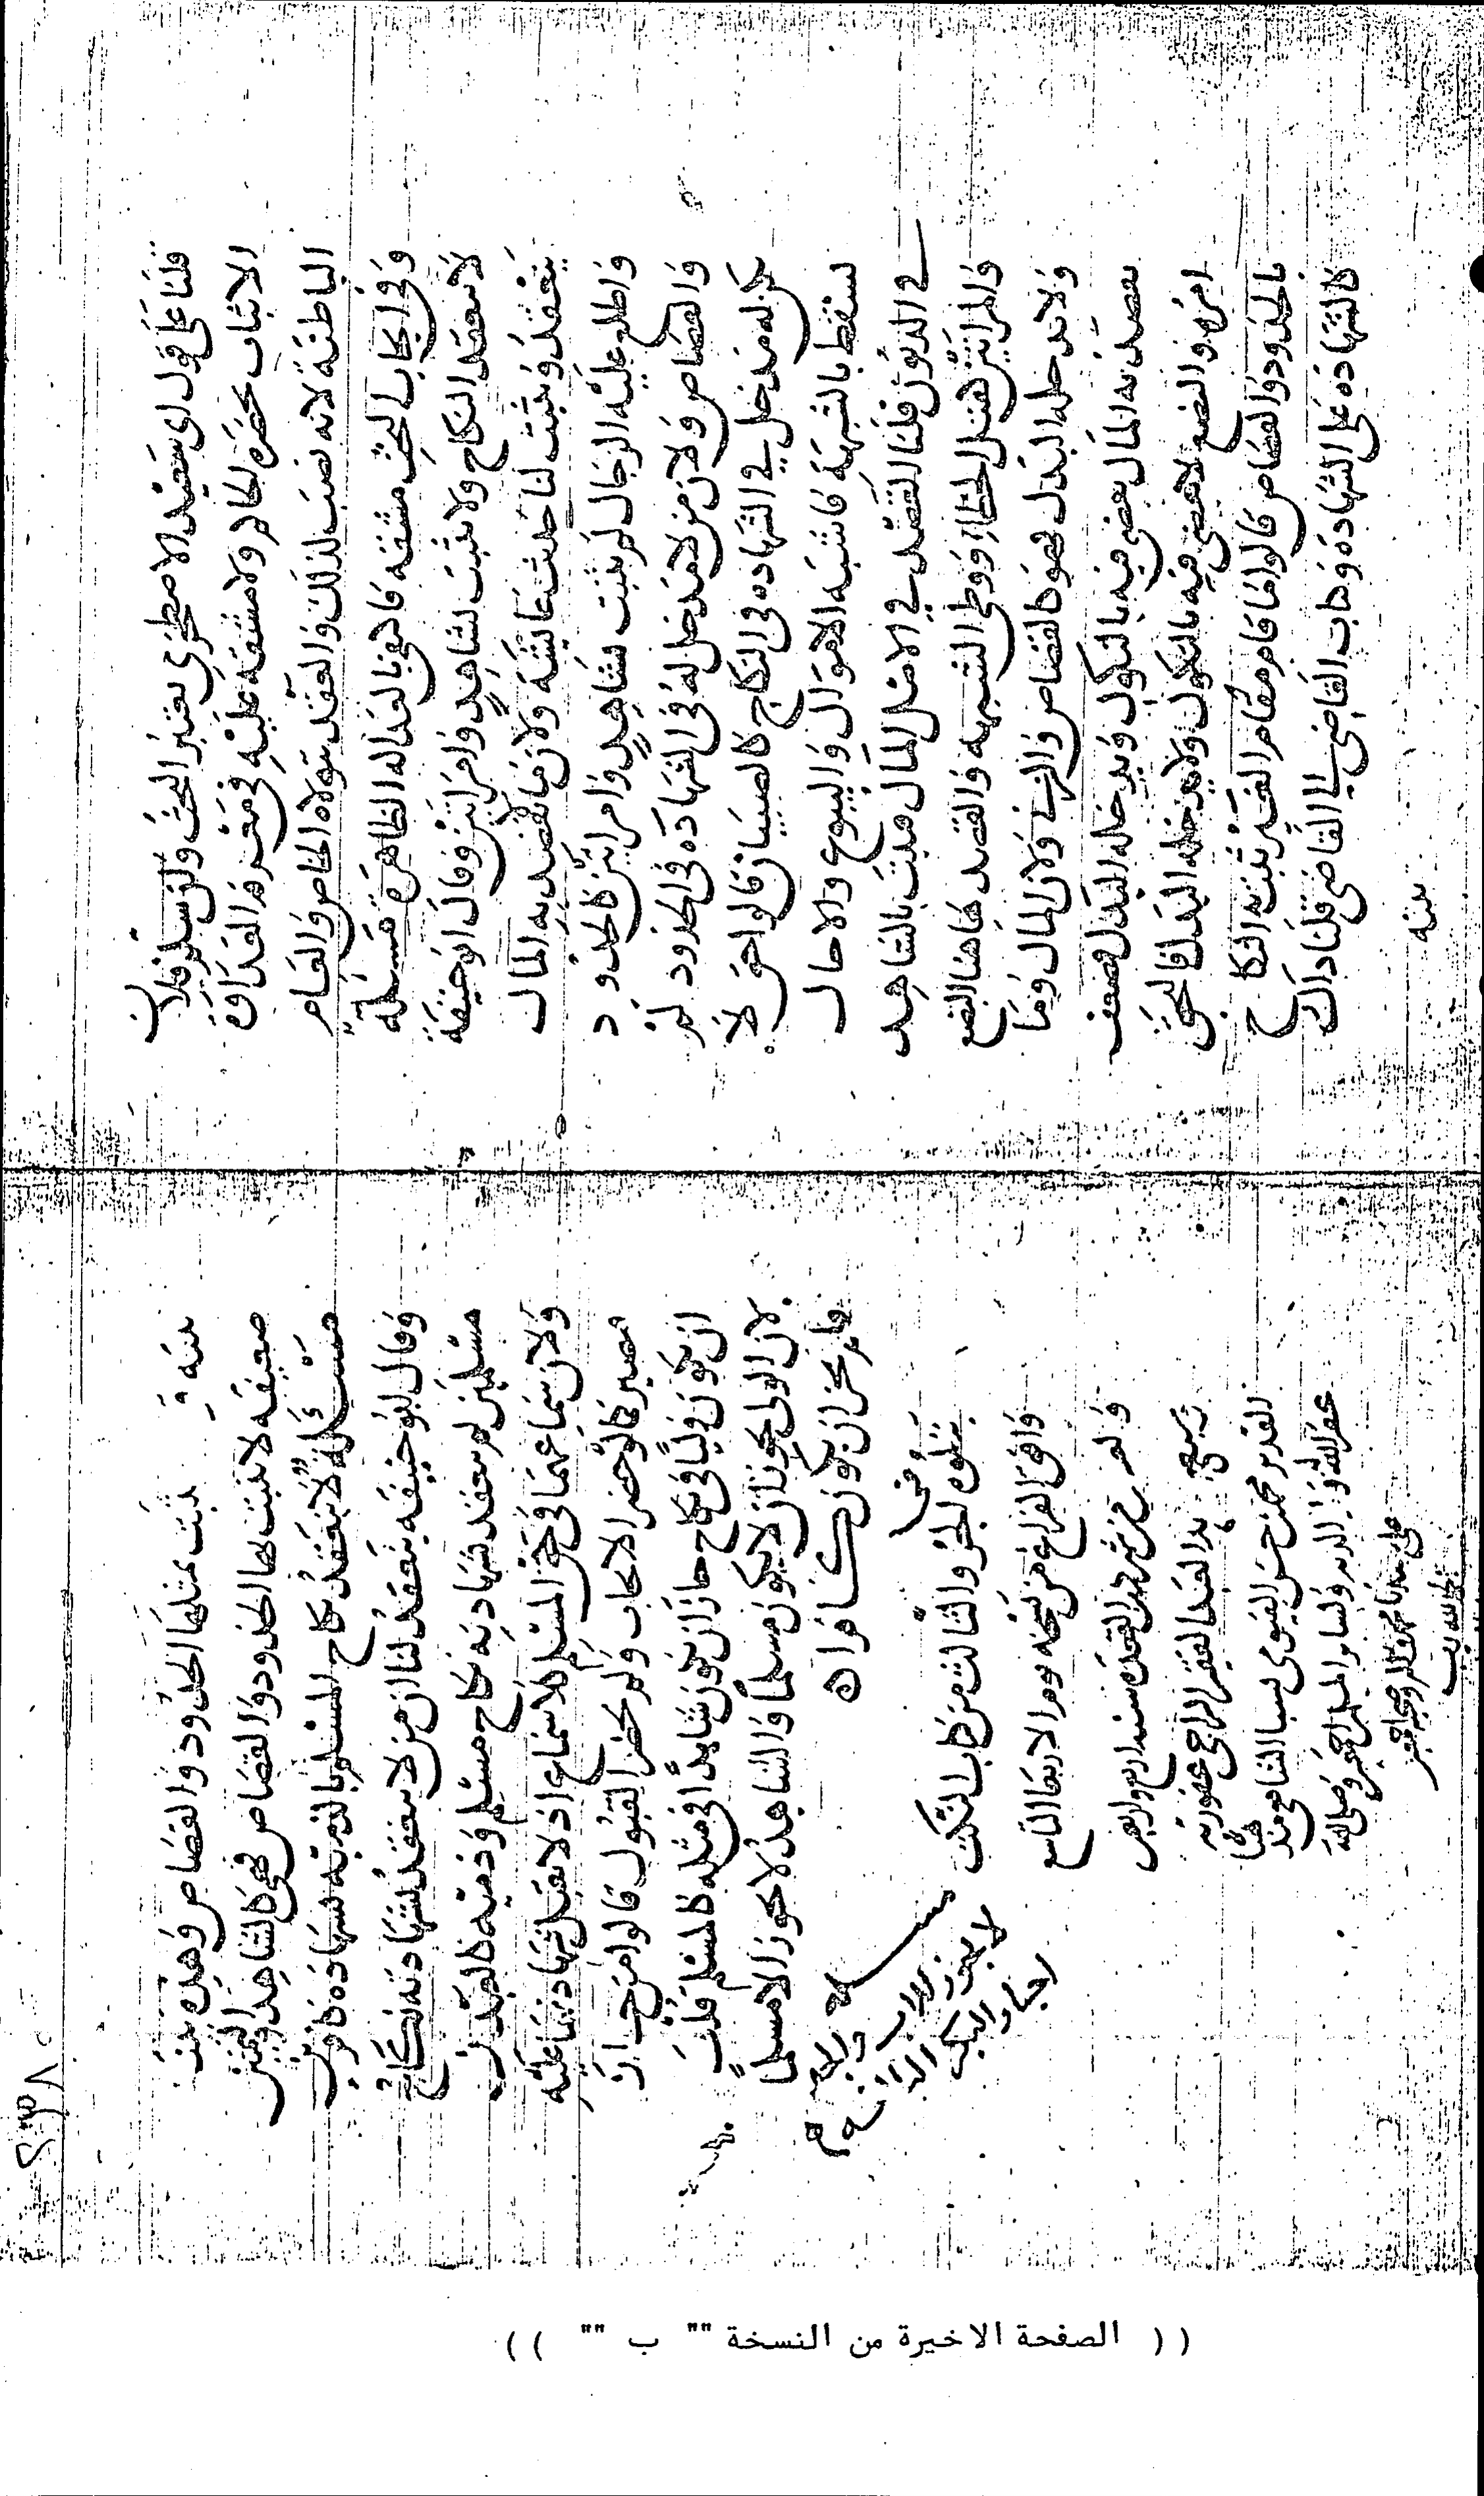 قلنا على قول ابي سعيد الاصطخري يعتبر البحث ولئن سلم فلان
الاثبات بحضره الحاكم ولا مشقه عليه في معرفه العداله
الباطنة لانه نصب لذلك والعقد يتولاه الخاص والعام
وفي ايجاب البحث مشقه فاكتفي بالعداله الظاهرة مسئلة
لا ينعقد النكاح ولا يثبت بشاهد وامراتين وقال ابو حنيفة
ينعقد ويثبت لنا حديث عائشة ولان ما لا يقصد به المال
واطلع عليه الرجال لم يثبت بشاهد وامراتين كالحدود
والقصاص ولان من لا مدخل له في الشهاده في الحدود لم
يكن له مدخل في الشهاده في النكاح كالصبيان قالوا حق لا
يسقط بالشبهة فاشبه الاموال والبيوع والاجال
في الديون قلنا القصد في الاصل المال فيثبت بالشاهد
والمراتين هتك الخطا ووطي الشبهه والقصد هاهنا البضع
ولا يدخله البدل فهو كالقصاص والزنى ولان المال وما
يقصد به المال يقضى فيه بالنكول ويدخله البدل فضعف
امره والبضع لا يقضى فيه بالنكول ولا يدخله البدل فالحق
بالحدود والقصاص قالوا ما قام مقام الغير يثبت به النكاح
كالشهادة على الشهادة وكتاب القاضي الى القاضي قلنا ذاك
بينه
بينة يثبت بمثلها الحدود والقصاص وهذه بينة
ضعيفه لا يثبت بها الحدود والقصاص فهي كالشاهد واليمين
مسئلة لا ينعقد نكاح المسلم بالذمية بشهادة كافرين
وقال ابو حنيفه ينعقد لنا ان من لا ينعقد بشهادته نكاح
مسلمين لم ينعقد بشهادته نكاح مسلم وذميه كالعبدين
ولان سماعهما في حق المسلم كلا سماع اذ لا تقبل شهادتهما عليه
فيصير كما لو حضر الايجاب ولم يحضر القبول قالوا من جاز
ان يكون وليا في نكاح جاز ان يكون شاهدا في مثله كالمسلم قلت
لان الولي يجوز ان لا يكون مسلما والشاهد لا يجوز الا مسلما
فلم يجز ان يكون كافرا ه
يتلوه الجزو الثالث من كتاب النكت
وافق الفراغ من نسخه يوم الاربعا التاسع
من شهر ذي القعدة سنه اربع واربعين
العبد الفقير الراجي عفو ربه
القدير محمد بن حسن الفيومي نسبا الشافعي مذهبا
غفر الله له ولوالديه ولسائر المسلمين اجمعين وصلى الله
على سيدنا محمد واله وصحبه اجمعين
(( الصفحة الاخيرة من النسخة "" ب "" ))